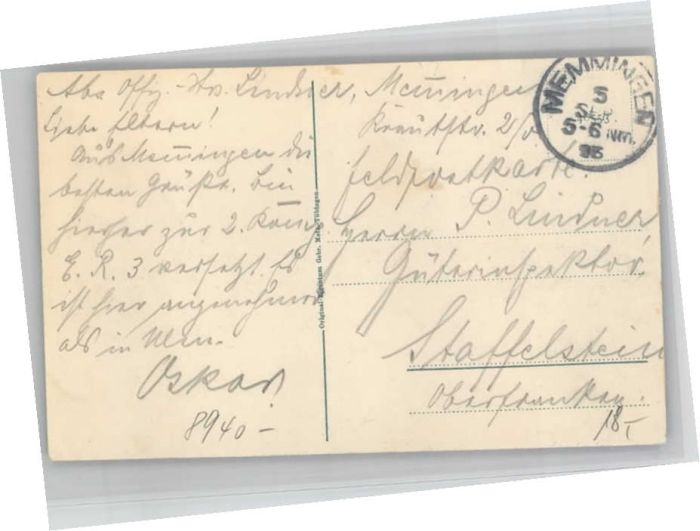 Abs. Offz.-Stv. Lindner, Memmingen
Krautstr. 2/0
Liebe Eltern!
Aus Memmingen die
besten Grüße. Bin
hierher zur 2. Komp.
E. R. 3 versetzt. Es
ist hier angenehmer
als in Ulm.
Oskar.
8940 –
Original-Eigentum Gebr. Metz, Tübingen
MEMMINGEN
5
SEP.
5-6 Nm.
Feldpostkarte.
Herrn P. Lindner
Güterinspektor
Staffelstein
Oberfranken.
18,-